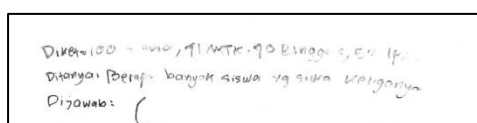 Diket=100 siswa, 41 MTK. 90 Inggris, 
Ditanya: Berapa banyak siswa yg suka ketiganya
Dijawab: